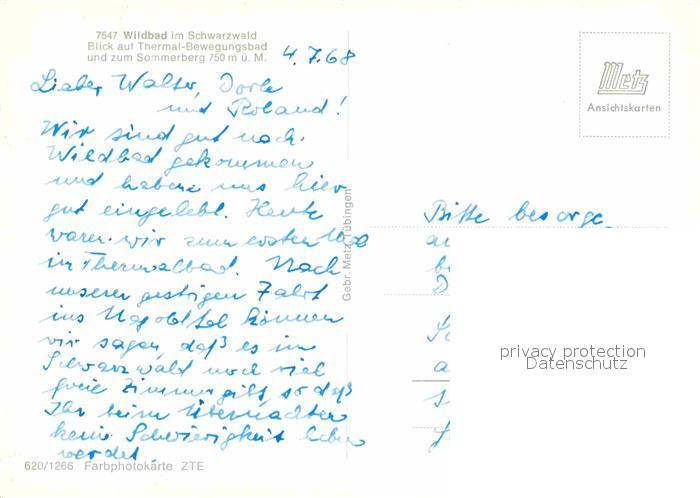 7547 Wildbad im Schwarzwald
Blick auf Thermal-Bewegungsbad
und zum Sommerberg 750 m ü. M.
4.7.68
Lieber Walter, Dorle
und Roland!
Wir sind gut nach
Wildbad gekommen
und haben uns hier
gut eingelebt. Heute
waren wir zum ersten Mal
im Thermalbad. Nach
unserer gestrigen Fahrt
ins Nagoldtal können
wir sagen, daß es im
Schwarzwald noch viel
freie Zimmer gibt, so daß
Ihr beim Übernachten
keine Schwierigkeit haben
werdet.
620/1266 Farbphotokarte ZTE
Gebr. Metz Tübingen
Metz
Ansichtskarten
Bitte besorge
privacy protection
Datenschutz